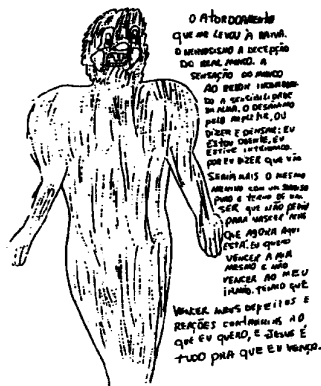 O ATORDOAMENTO
QUE ME LEVOU À RAIVA.
O NERVOSISMO A DECEPÇÃO
DO REAL MUNDO. A
SENSAÇÃO DO MUNDO
AO REDOR
DO A SENSIBILIDADE
DA ALMA. O DESANIMO
PELO OU
DIZER E PENSAR: EU
ESTOU DOENTE, EU
ESTIVE INTERNADO.
POR EU DIZER QUE NÃO
SERIA MAIS O MESMO
MENINO COM UM SORRISO
PURO E TERNO DE UM
SER QUE NÃO PEDIU
PARA NASCER MAS
QUE AGORA AQUI
ESTÁ. EU QUERO
VENCER A MIM
MESMO E NÃO
VENCER AO MEU
IRMÃO. TENHO QUE
VENCER MEUS DEFEITOS E
REAÇÕES CONTRARIAS AO
QUE EU QUERO, E JESUS É
TUDO PRA QUE EU VENÇA.